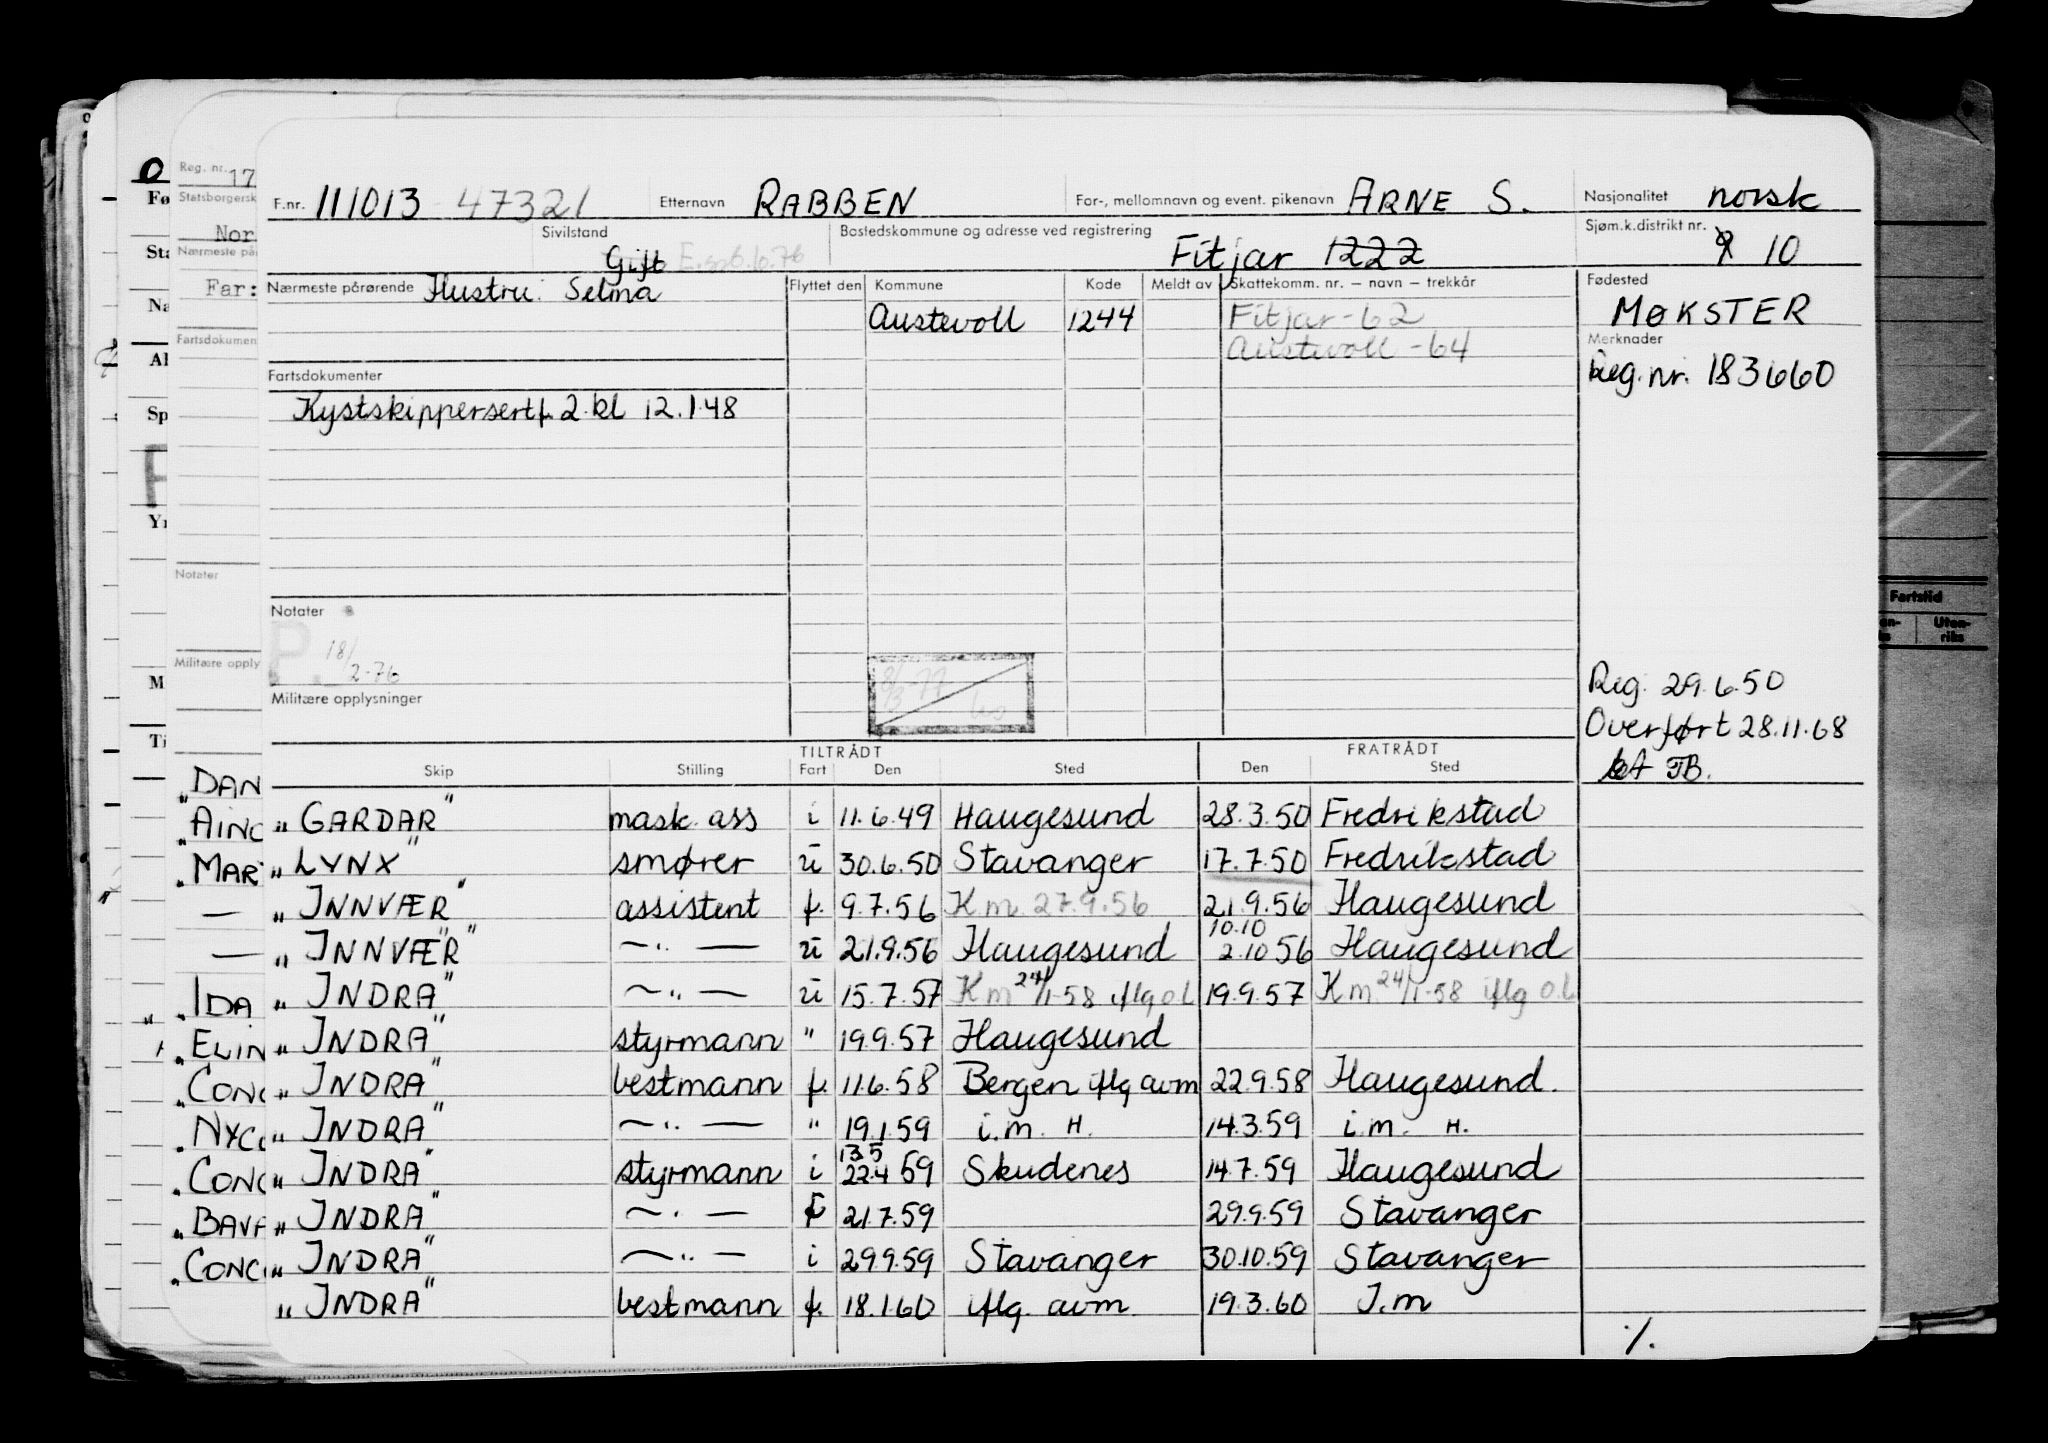 F.nr. 111013 47321 Etternavn RABBEN For-, mellomnavn og event. pikenavn ARNE S. Nasjonalitet norsk
Sivilstand Gift Bostedskommune og adresse ved registrering Fitjar 1222 Sjøm.k.distrikt nr. 9 10
Nærmeste pårørende Hustru: Selma Flyttet den Kommune Kode Meldt av Skattekomm. nr. – navn – trekkår Fødested
Austevoll 1244 Fitjar-62 MØKSTER
Austevoll -64 Merknader
Fartsdokumenter Reg. nr. 183660
Kystskippersertf. 2.kl 12.1.48
Notater
P. 18/2-76
Militære opplysninger
Reg. 29.6.50
Overført 28.11.68
TB.
TILTRÅDT FRATRÅDT
Skip Stilling Fart Den Sted Den Sted
„GARDAR" mask. ass i 11.6.49 Haugesund 28.3.50 Fredrikstad
„LYNX" smører ū 30.6.50 Stavanger 17.7.50 Fredrikstad
„INNVÆR" assistent f. 9.7.56 Km 27.9.56 21.9.56 Haugesund
„INNVÆR" —„— ū 21.9.56 Haugesund 10.10 2.10 56 Haugesund
„INDRA" —„— ū 15.7.57 Km 24/1-58 iflg o.l 19.9.57 Km 24/1-58 iflg o.l
„INDRA" styrmann " 19.9.57 Haugesund
„INDRA" bestmann f. 11.6.58 Bergen iflg avm 22.9.58 Haugesund.
„INDRA" —„— " 19.1.59 i.m. H. 14.3.59 i.m. H.
„INDRA" styrmann i 13.5 22.4 59 Skudenes 14.7.59 Haugesund
„INDRA" —„— f 21.7.59 29.9.59 Stavanger
„INDRA" —„— i 29.9.59 Stavanger 30.10.59 Stavanger
„INDRA" bestmann f. 18.1.60 iflg. avm. 19.3.60 I.m
./.
Reg. nr. 17
Statsborgersk
Nor
Nærmeste på
Far:
Fartsdokumen
Notater
Militære opply
„DAN
„AINO
„MAR
„IDA
„ELIN
„CONC
„CONC
„CONC
Fartstid
Uten-
riks